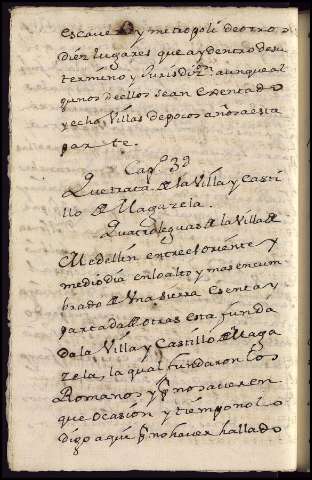 es cave y metropoli de otro s
diez lugares que ay dentro de su
termino y Jurisdizon. aunque al
gunos de ellos sean Exentado
y echo Villas de pocos años a esta
parte.
Capo. 39
Que trata de la Villa y Casti
llo de Magazela.
Quatro leguas de la Villa de
Medellin entre el oriente y
medio dia en lo alto y mas encum
brado de Una sierra Esenta y
partada de otras esta funda
da la Villa y Castillo de Maga
zela, la qual fundaron los
Romanos y pr. no saver en
que ocasion y tiempo no lo
digo aqui pr. no haver hallado